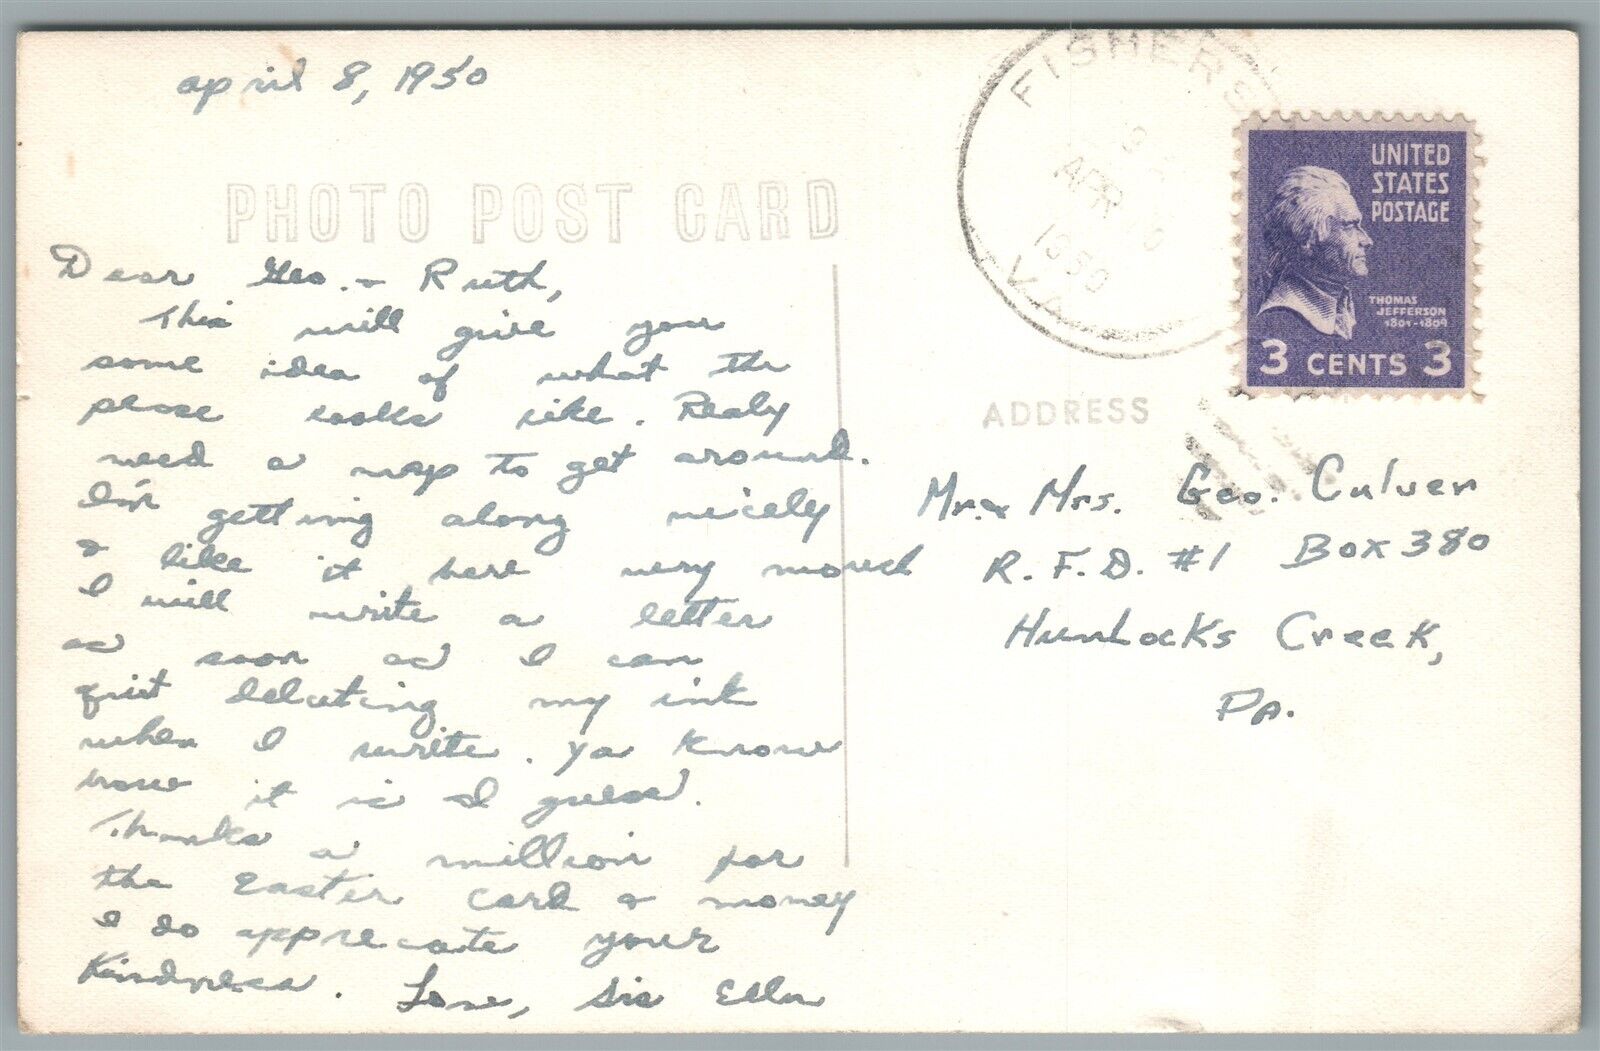 april 8, 1950
PHOTO POST CARD
Dear Geo. & Ruth,
This will give you
some idea of what the
place looks like. Realy
need a map to get around.
I'm getting along nicely
& like it here very much
I will write a letter
as soon as I can
quit deluting my ink
when I write. Ya know
how it is I guess.
Thanks a million for
the Easter card & money
I do apprecate your
Kindness. Love, Sis Ellen
FISHERS
APR
1950
VA.
UNITED
STATES
POSTAGE
THOMAS
JEFFERSON
1801-1809
3 CENTS 3
ADDRESS
Mr. & Mrs. Geo. Culver
R.F.D. #1 Box 380
Hunlocks Creek,
Pa.